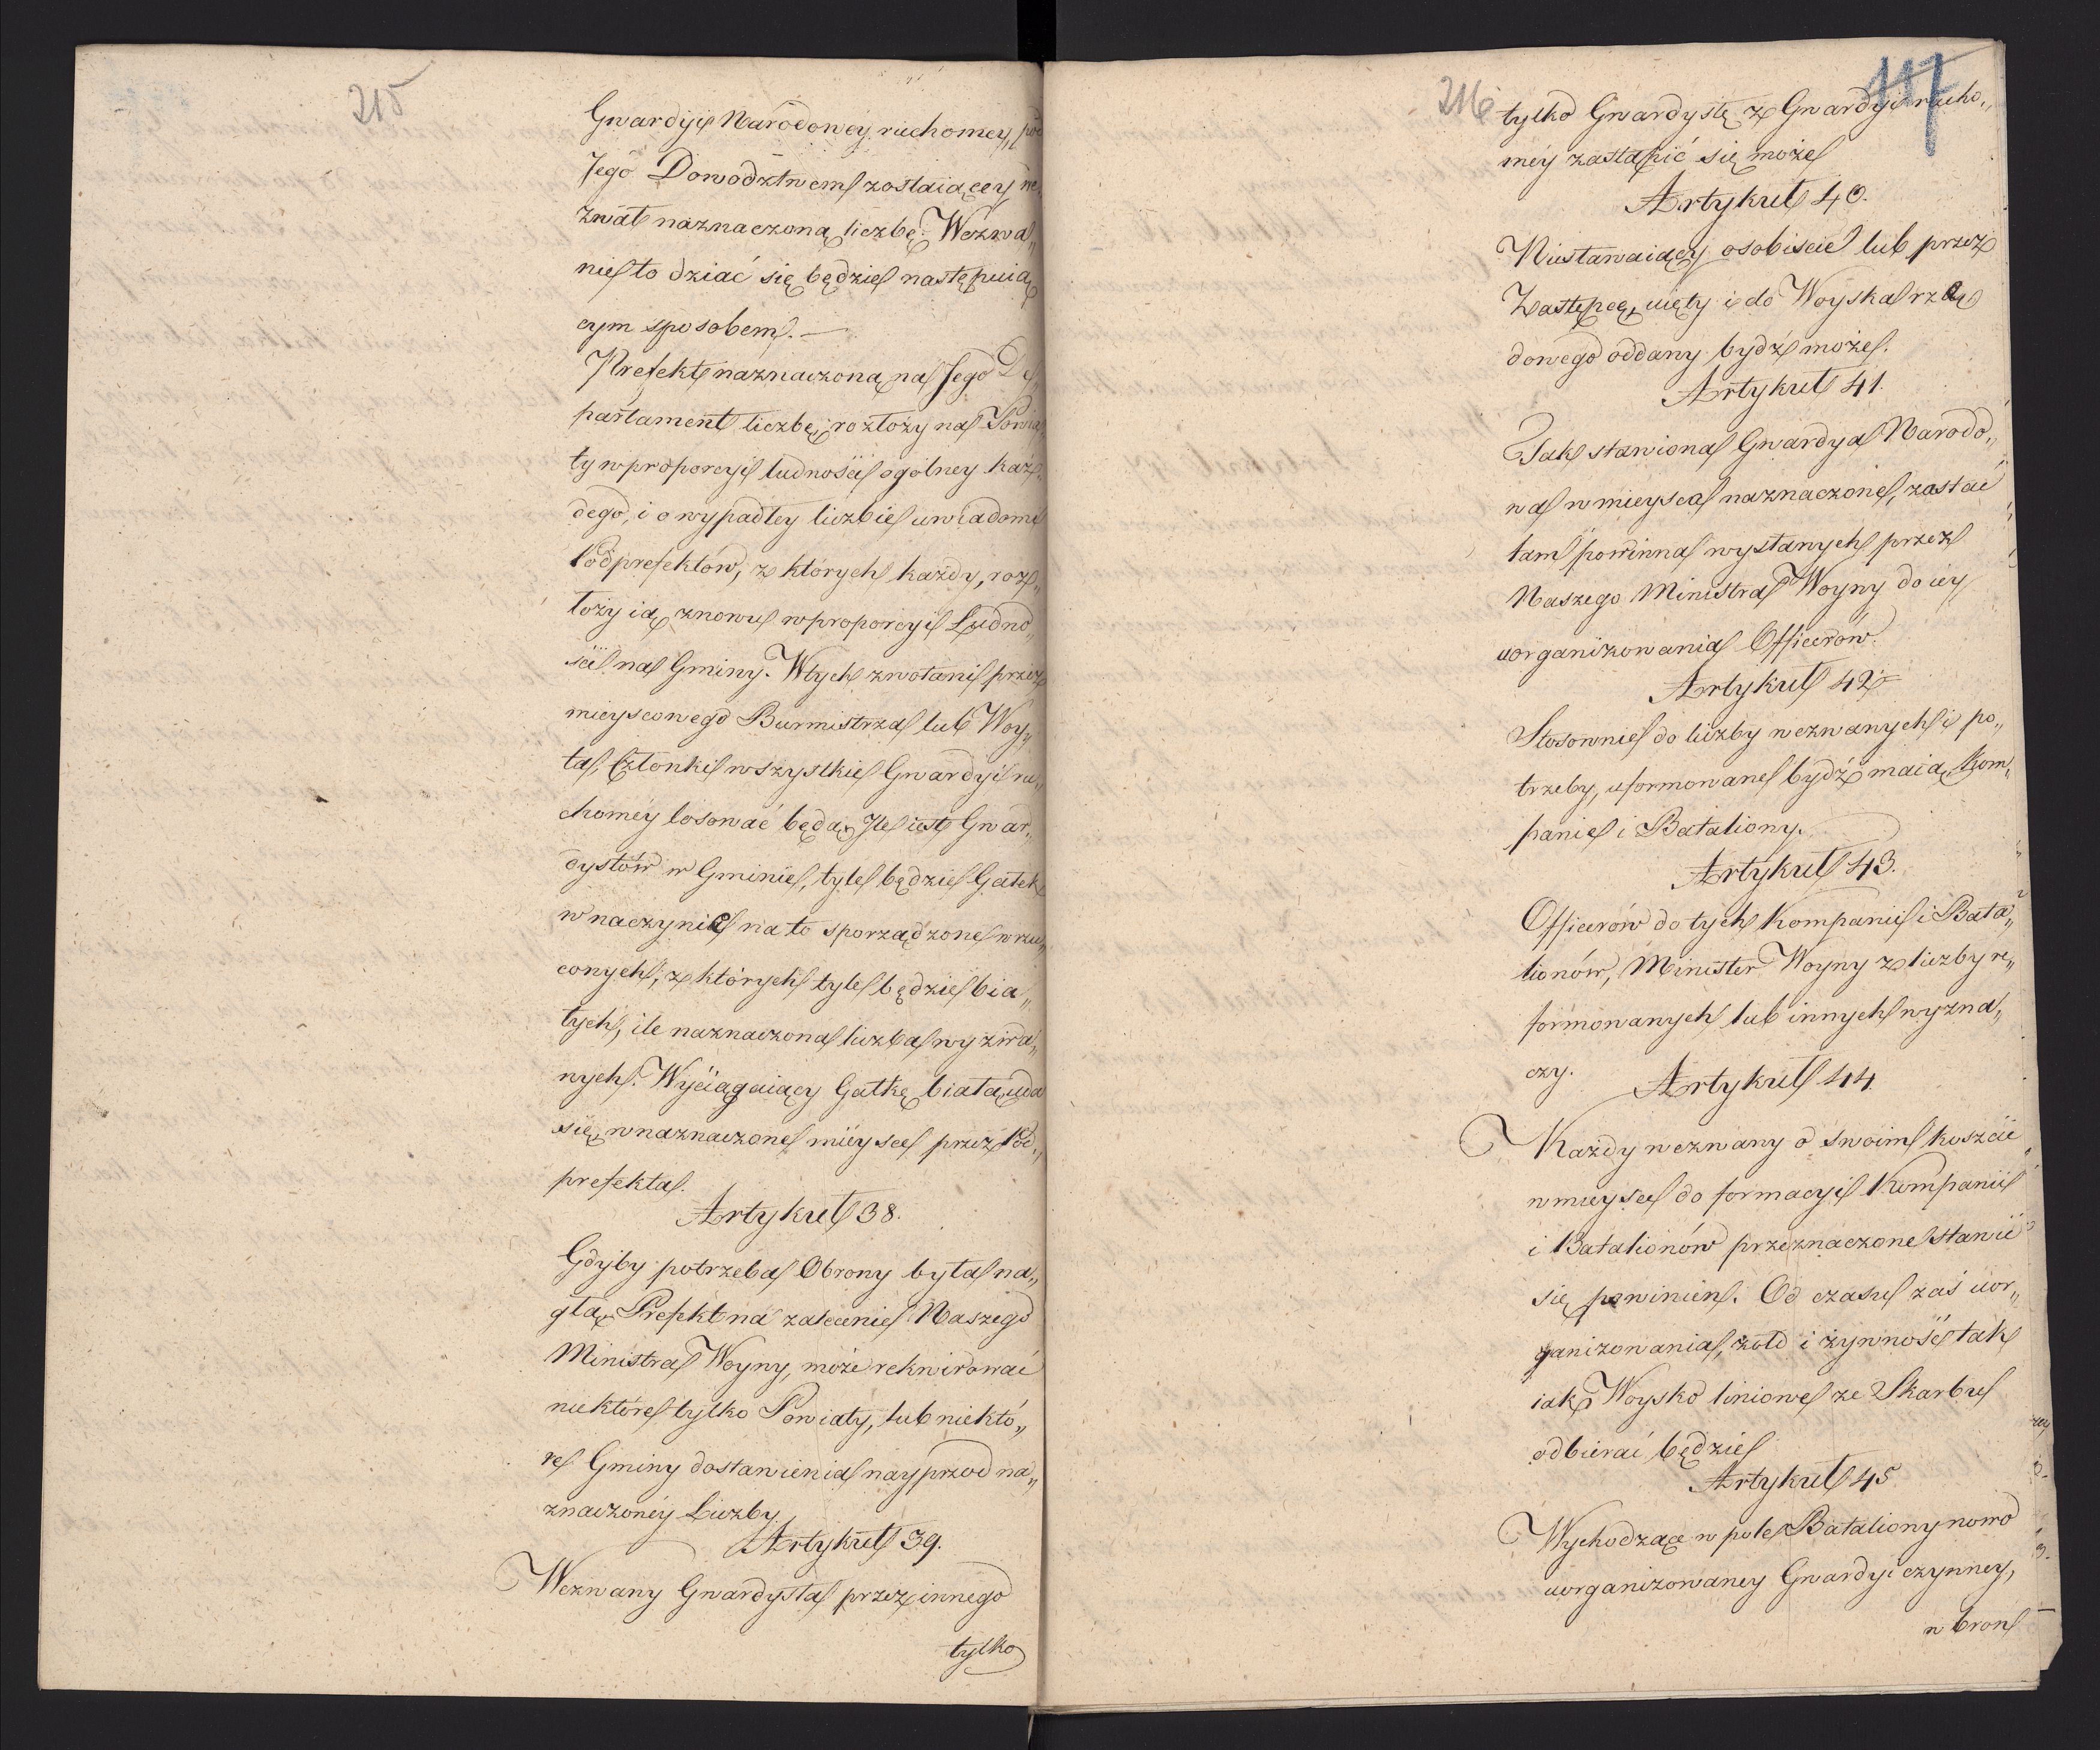 215
Gwardyi Narodowey ruchomey, pod
Jego Dowodztwem zostaiącey we„
zwał naznaczoną liczbę. Wezwa„
nie to dziać się będzie następuią„
cym sposobem. —
Prefekt naznaczoną na Jego De„
partament liczbę, rozłoży na Powia„
ty w proporcyi ludności ogólney każ„
dego, i o wypadłey liczbie uwiadomi
Podprefektów, z których każdy, roz„
łoży ią znowu w proporcyi Ludno„
ści na Gminy. W tych zwołani przez
mieyscowego Burmistrza lub Woy„
ta, Członki wszystkie Gwardyi ru„
chomey losować będą. Ile iest Gwar„
dystów w Gminie, tyle będzie Gałek
w naczynie na to sporządzone wrzu„
conych, z których tyle będzie bia„
łych, ile naznaczona liczba wyzwa„
nych. Wyciągaiący Gałkę białą, uda
się w naznaczone mieysce przez Pod„
prefekta.
Artykuł 38.
Gdyby potrzeba Obrony była na„
gła, Prefekt na zalecenie Naszego
Ministra Woyny, może rekwirować
niektóre tylko Powiaty, lub niektó„
re Gminy dostawienia nayprzod na„
znaczoney Liczby.
Artykuł 39.
Wezwany Gwardysta przez innego
tylko
216
117
tylko Gwardystę z Gwardyi rucho„
mey zastąpić się może
Artykuł 40.
Niestawaiący osobiscie lub przez
Zastępcę, uięty i do Woyska rzą„
dowego oddany bydź może.
Artykuł 41.
Tak stawiona Gwardya Narodo„
wa w mieysca naznaczone, zastać
tam powinna wysłanych przez
Naszego Ministra Woyny do iey
uorganizowania Officerów.
Artykuł 42
Stosownie do liczby wezwanych i po„
trzeby, uformowane bydź maią Kom„
panie i Bataliony.
Artykuł 43.
Officerów do tych Kompanii i Bata„
lionów, Minister Woyny z liczby re„
formowanych lub innych wyzna„
czy.
Artykuł 44
Każdy wezwany o swoim koszcie
w mieysce do formacyi Kompanii
i Batalionów przeznaczone stawić
się powinien. Od czasu zaś uor„
ganizowania, żołd i żywność tak
iak Woysko liniowe ze Skarbu
odbierać będzie
Artykuł 45
Wychodzące w pole Bataliony nowo
uorganizowaney Gwardyi czynney,
w broń